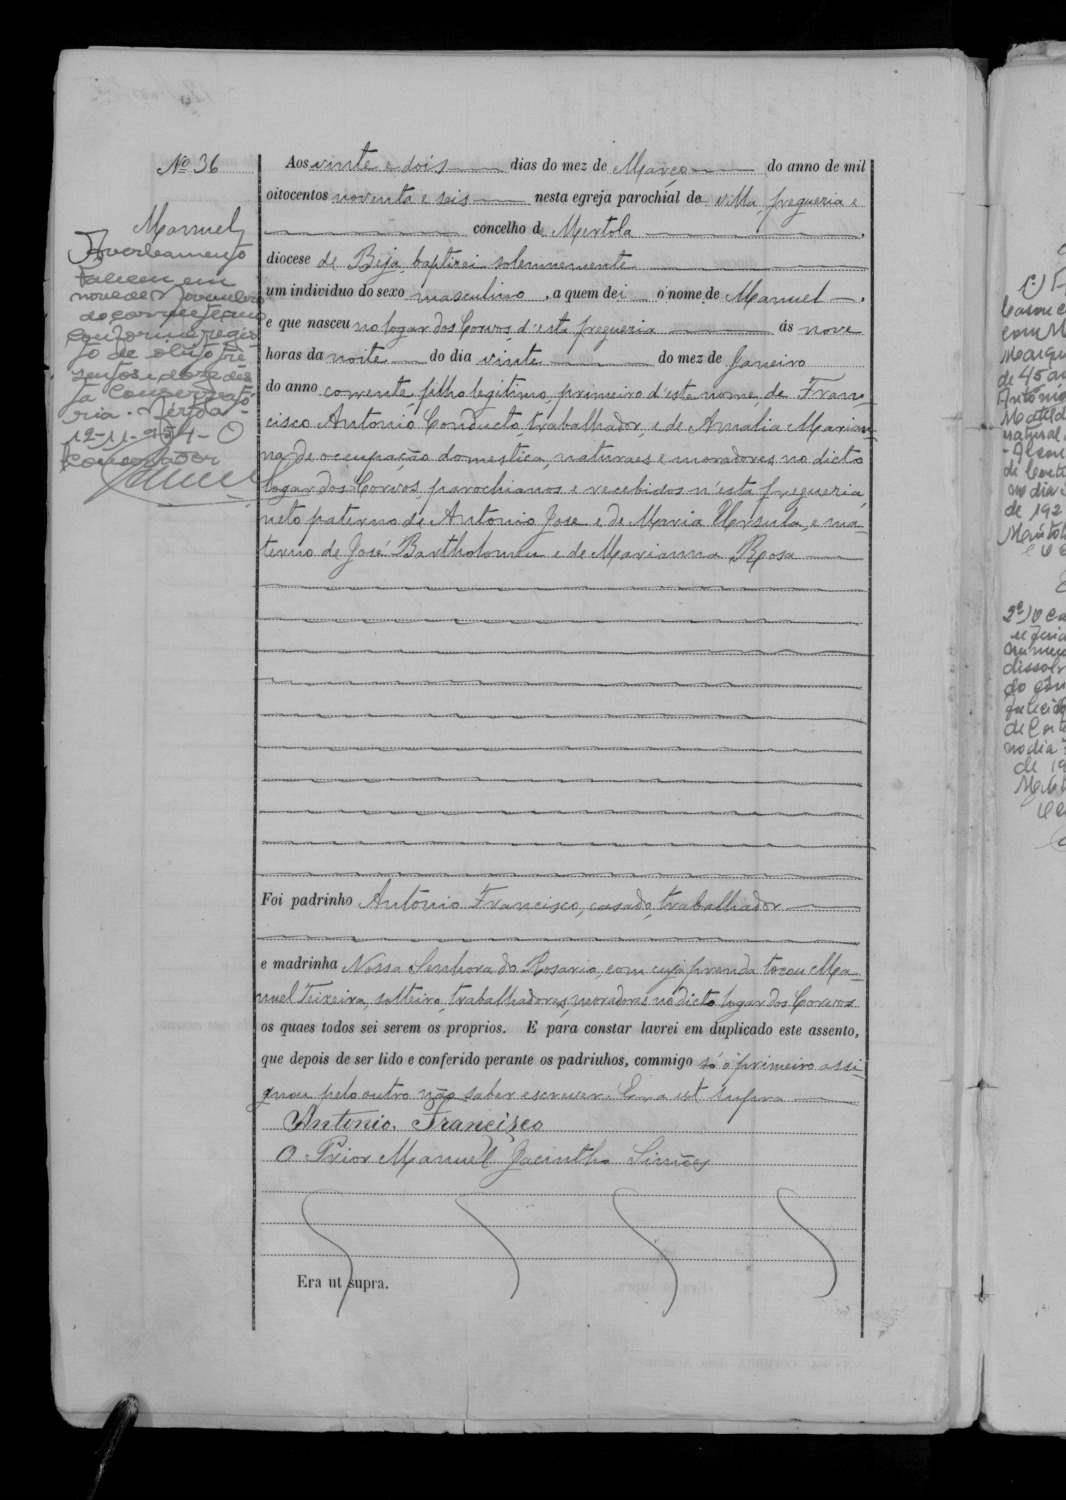 Nº 36
Manuel
Averbamento
Faleceu em
nove de Novembro
do corrente anno
conforme regis-
to de obito tre-
sentos e doze des-
ta Conservató-
ria. Mértola-
12-11-954- O
Conservador
Aos vinte e dois dias do mez de Março do anno de mil
oitocentos noventa e seis nesta egreja parochial de villa, freguesia e
concelho de Mertola,
diocese de Beja, baptizei solemnemente
um individuo do sexo masculino, a quem dei o nome de Manuel,
e que nasceu no logar dos Corvos, d'esta freguesia ás nove
horas da noite do dia vinte do mez de Janeiro
do anno corrente, filho legitimo, primeiro d'este nome, de Fran-
cisco Antonio Conducto, trabalhador, e de Amalia Marian-
na, de occupação domestica, naturaes e moradores no dicto
logar dos Corvos, parochianos e recebidos n'esta freguesia,
neto paterno de Antonio Jose e de Maria Ursula, e ma-
terno de José Bartholomeu e de Marianna Rosa
Foi padrinho Antonio Francisco, casado, trabalhador
e madrinha Nossa Senhora do Rosario, com cuja prenda tocou Ma-
nuel Teixeira, solteiro, trabalhadores, moradores no dicto logar dos Corvos
os quaes todos sei serem os proprios. E para constar lavrei em duplicado este assento,
que depois de ser lido e conferido perante os padrinhos, commigo só o primeiro assi-
gnou pelo outro não saber escrever. Era ut supra
Antonio. Francisco
O Prior Manuel Jacintho Simões
Era ut supra.
1º)
Casou c
com M
Marqu
de 45 an
António
Matild
natural
no dia
de 192
Mértol
2º) O ca
referid
dissolv
falecid
de Corte
no dia
de 19